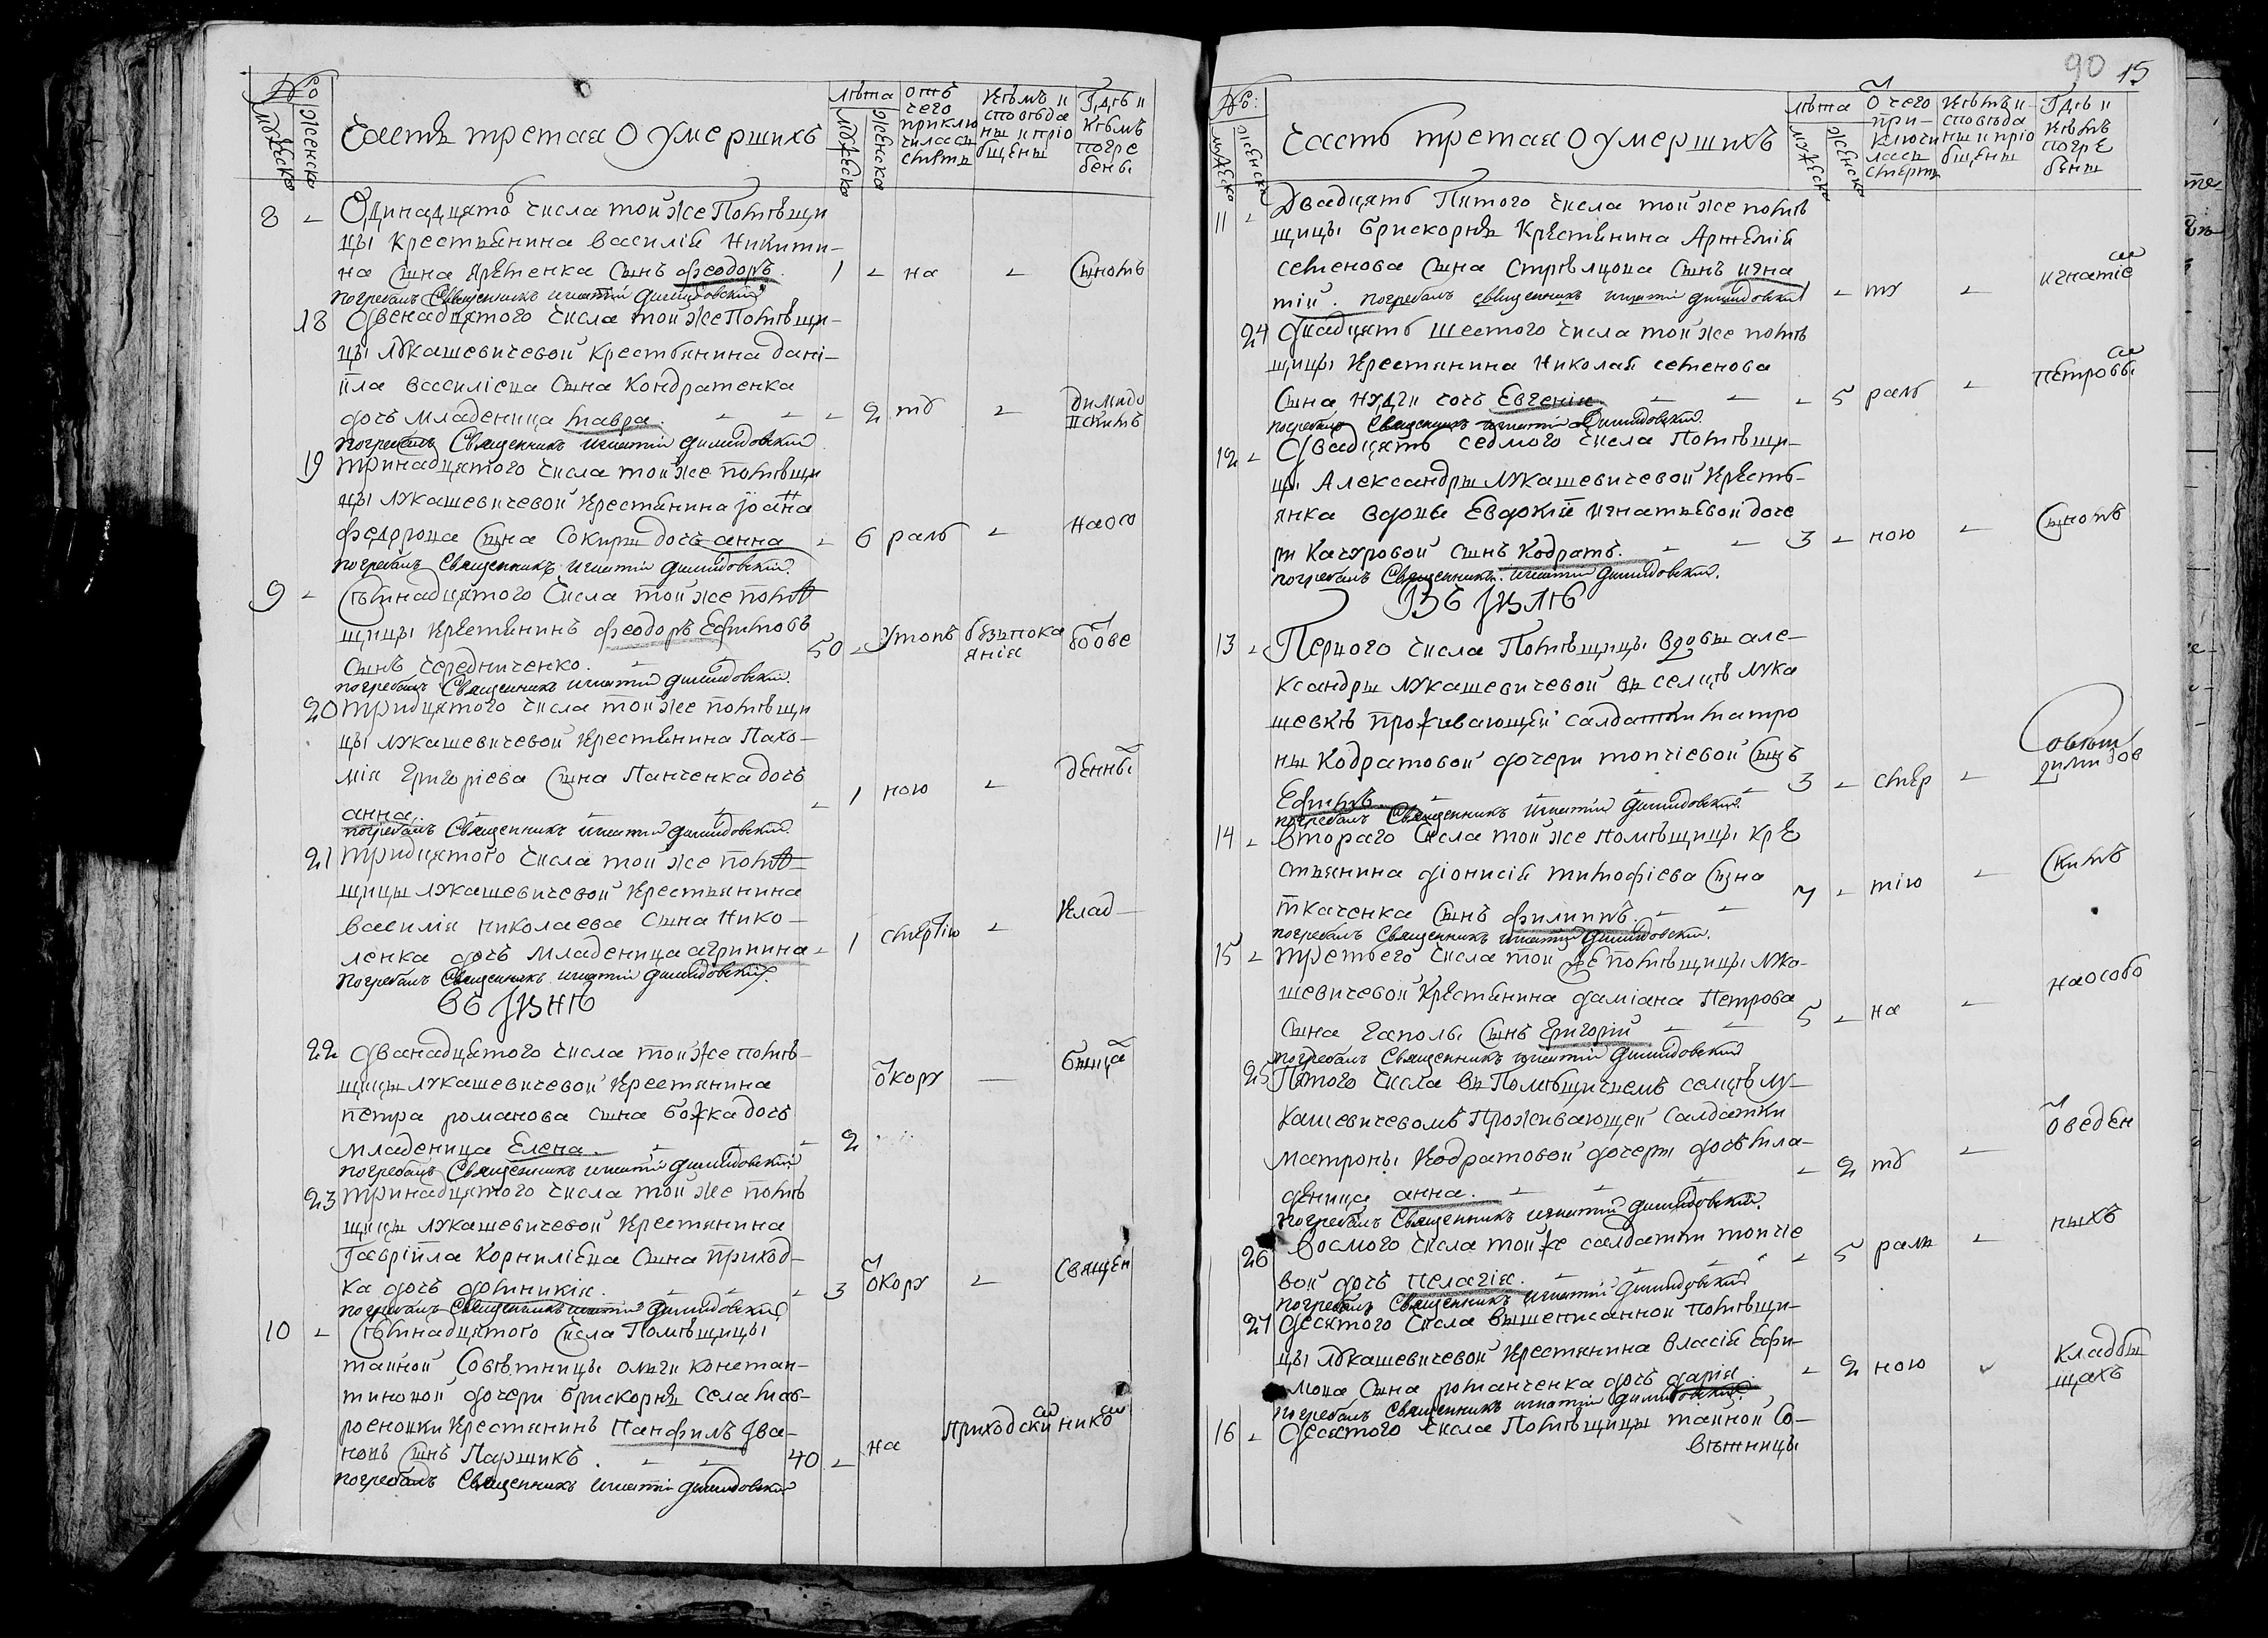 №
мужеска женска
Часть третая о умершихъ
лѣта
мужеска женска
отъ чего приключилась смерть
Кѣмъ исповѣданы и пріобщены
Гдѣ и кѣмъ погребены
8 - Одинадцять числа той же Помѣщи
цы крестьянина василій Никити-
на Сына яременка Сынъ феодоръ. 1 - на - Сыномъ
погребалъ Священникъ игнатій димидовскій
18 Двенадцятого числа той же Помѣщи-
цы Лукашевичевой крестьянина дані-
ила василіева Сына Кондратенка
дочь младеница мавра. - - - 2 тб - димидо
вскимъ
погребалъ Священникъ игнатій димидовскій
19 тринадцятого числа той же помѣщи
цы лукашевичевой Крестянина Іоанна
федорова Сына Сокиры дочь анна - 6 раль - на осо
погребалъ Священникъ игнатій димидовскій.
9 - Сѣмнадцятого числа той же помѣ
щицы Крестянинъ феодоръ Ефимовъ
сынъ чередниченко. 50 - утопъ безъ пока
янія бо ове
погребалъ Священникъ игнатій димидовскій.
20 тридцятого числа той же помѣщи
цы лукашевичевой Крестянина Пахо-
мія григоріева Сына Панченка дочь
анна. - - - 1 ною - денны
погребалъ Священникъ игнатій димидовскій
21 тридцятого числа той же помѣ
щицы лукашевичевой Крестьянина
василія николаева Сына Нико-
ленка дочь младеница агрипина - 1 смертію - Клад-
погребалъ Священникъ игнатій димидовскій.
въ Іюнѣ
22 дванадцятого числа той же помѣ-
щицы лукашевичевой Крестянина
петра романова сына божка дочь
младеница Елена. - - - 2 ѿ кору - бища
погребалъ Священникъ игнатій димидовскій
23 тринадцятого числа той же помѣ
щицы лукашевичевой Крестянина
Гавріила Корниліева Сына приход-
ка дочь домникія. - - - 3 ѿ кору - Священ
погребалъ Священникъ игнатій димидовскій
10 - Сѣмнадцятого Числа Помѣщицы
тайной Совѣтницы ольги констан-
тиновой дочери брискорнъ села мав-
росновки Крестянинъ Панфилъ Ива-
новъ Сынъ Паршикъ. - - 40 - на приходски нико
погребалъ Священникъ игнатій димидовскій
90 15
№:
мужеска женска
Часть третая о умершихъ
лѣта
мужеска женска
Ѿ чего приключилась смерть
Кѣмъ исповѣданы и пріобщены
Гдѣ и кѣмъ погребены
11 - Двадцять Пятого числа той же помѣ
щицы брискорнъ Крестянина Артемій
семенова Сына Стрѣлцова Сынъ игна
тій. погребалъ священникъ игнатій димидовскій - ту - игнатіе
24 Двадцять шестого числа той же помѣ
щицы Крестянина Николай семенова
Сына нудги дочь Евгенія. - - - 5 раль - петровы
погребалъ Священникъ игнатій димидовскій.
12 - Двадцять седмого числа Помѣщи-
цы Александры лукашевичевой Кресть-
янка вдовы Евдокій игнатьевой доче
ри Качуровой сынъ Кодратъ. - - 3 - ною - Сыномъ
погребалъ Священникъ игнатій димидовскій.
въ Іюлѣ
13 - Первого числа Помѣщицы вдовы але-
ксандры лукашевичевой въ селцѣ лука
шевкѣ проживающей салдатки матро
ны Кодратовой дочери топчіевой Сынъ
Ефимъ. - - - 3 - смер -
димидов
погребалъ Священникъ игнатій димидовскій.
14 - втораго числа той же помѣщицы кре
стьянина діонисій тимофіева Сына
ткаченка Сынъ филиппъ. - - 7 - тію - Скимъ
погребалъ Священникъ игнатій димидовскій.
15 - третьего числа той же помѣщицы лука-
шевичевой крестянина даміана Петрова
сына гаполы Сынъ григорій - - 5 - на - на особо
погребалъ Священникъ игнатій димидовскій
25 Пятого числа въ Помѣщичемъ селцѣ лу-
кашевичевомъ проживающей салдатки
матроны Кодратовой дочери дочь мла-
деница анна. - - - 2 тб - ѿведен
погребалъ Священникъ игнатій димидовскій.
26 восмого числа той же салдатки топчіе
вой дочь пелагія. - - - 5 раль - ныхъ
погребалъ Священникъ игнатій димидовскій
27 десятого числа вышеписанной помѣщи-
цы лукашевичевой Крестянина власій Ефи-
мова Сына романченка дочь дарія. - 2 ною - кладбы
щахъ
погребалъ Священникъ игнатій димидовскій.
16 - Десятого числа Помѣщицы тайной Со-
вѣтницы